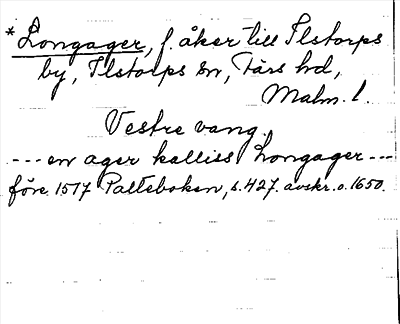 *Longager, f. åker till Ilstorps
by, Ilstorps sn, Färs hd,
Malm. l.
Vestre vang.
--- en ager kalliss Longager ---
före 1517 Palteboken, s. 427. avskr. o. 1650.